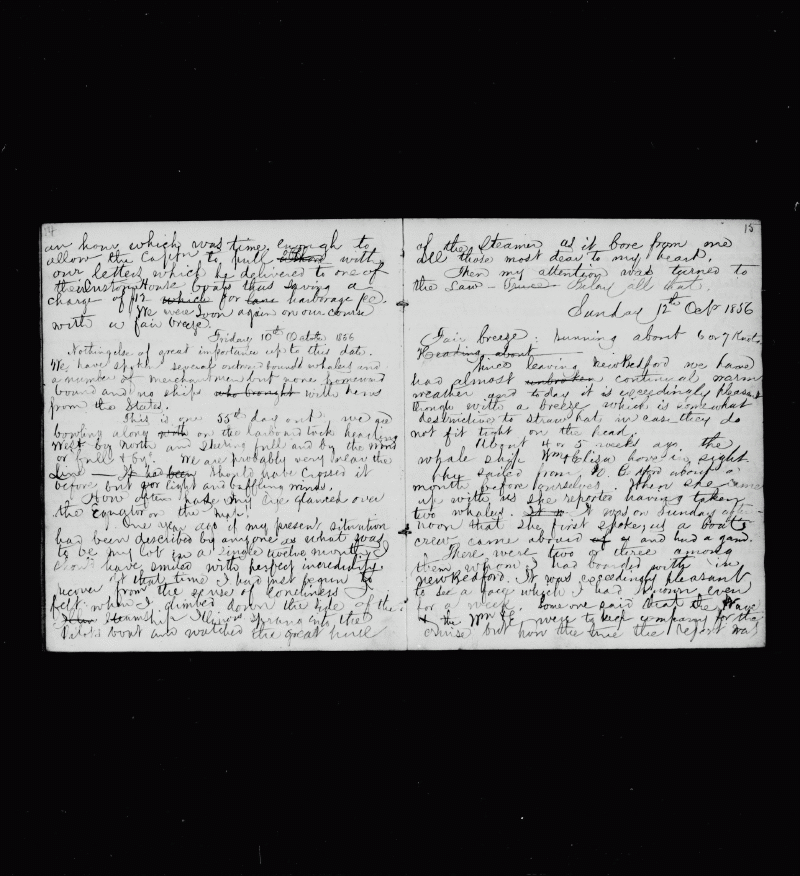 14
an hour which was time enough to
allow the Captn to pull with
our letters which he delivered to one of
the Custom House boats thus saving a
charge of $12 which for harborage fee.
We were soon again on our course
with a fair breeze.
Friday 10th October 1856
Nothing else of great importance up to this date.
We have spoken several outward bound whalers and
a number of merchantmen but none homeward
bound and no ships who brought with news
from the States.
This is our 55th day out. We are
bowling along with on the larboard tack heading
West by North and steering full and by the wind
or full & by. We are probably very near the
Line — It has been should have crossed it
before but for light and baffling winds.
How often have my eye glanced over
the Equator on the map.
One year ago if my present situation
had been described by anyone as what was
to be my lot in a single twelve month I
should have smiled with perfect incredulity
at that time I had just begun to
recover from the sense of loneliness I
felt when I climbed down the side of the
Steamship Illinois sprang into the
Pilots boat and watched the great hull
15
of the Steamer as it bore from me
all those most dear to my heart.
Then my attention was turned to
the Law — Belay all that.
Sunday 12th Octr 1856
Fair breeze: running about 6 or 7 Knots
Heading about
Since leaving New Bedford we have
had almost unbroken continual warm
weather and today it is exceedingly pleasant
though with a breeze which is somewhat
destructive to straw hats in case they do
not fit tight on the head.
About 4 or 5 weeks ago the
whale ship Wm & Eliza hove in sight.
She sailed from N. Bedford about a
month before ourselves. When she came
up with us she reported having taken
two whales. It w It was on Sunday after-
noon that she first spoke us a boats
crew came aboard of us and had a gam.
There were two or three among
them whom I had boarded with in
New Bedford. It was exceedingly pleasant
to see a face which I had known even
for a week. Some one said that the Wave
& the Wm & E. were to keep company for the
cruise but how the true the report was